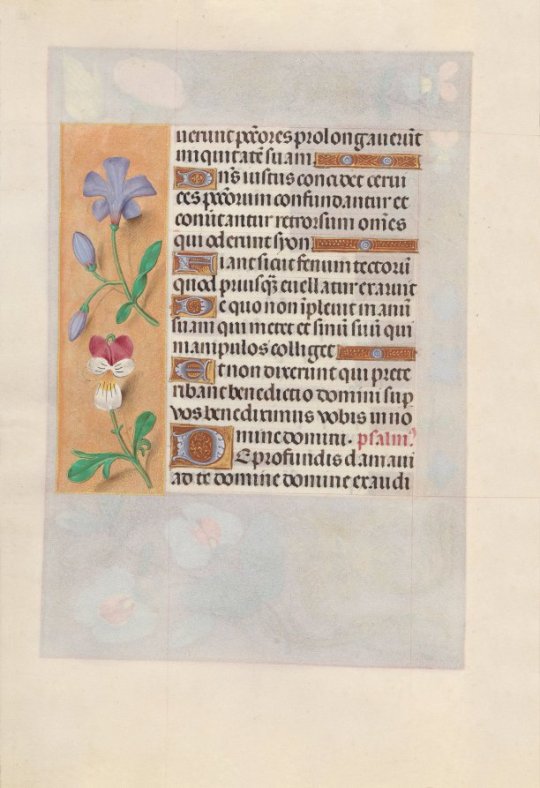 uerunt pctores prolongauerūt
iniquitatē suam.
Dn̄s iustus concidet cerui
ces pctorum confundantur et
conūtantur retrorsum omēs
qui oderunt syon
Fiant sicut fenum tectorū
quod priusqȝ euellatur exaruit
De quo non īpleuit manū
suam qui metet et sinū suū qui
manipulos colliget
Et non dixerunt qui prete
ribant benedictio domini sup
vos benediximus vobis in no
mine domini. psalm⁹
De profundis clamaui
ad te domine domine exaudi